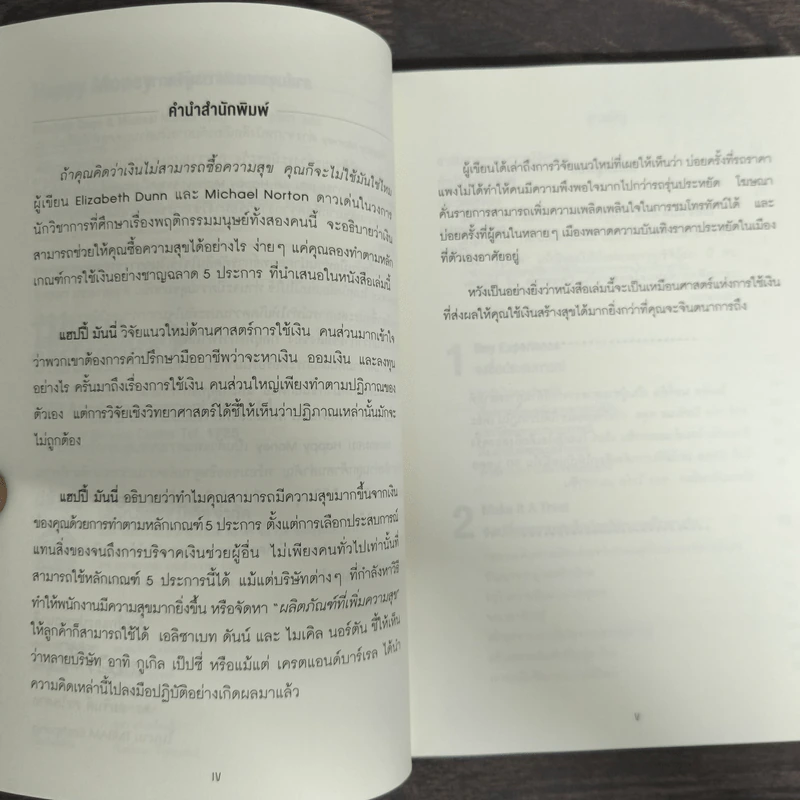 คำนำสำนักพิมพ์
ถ้าคุณคิดว่าเงินไม่สามารถซื้อความสุข คุณก็จะไม่ใช้มันใช่ไหม
ผู้เขียน Elizabeth Dunn และ Michael Norton ดาวเด่นในวงการ
นักวิชาการที่ศึกษาเรื่องพฤติกรรมมนุษย์ทั้งสองคนนี้ จะอธิบายว่าเงิน
สามารถช่วยให้คุณซื้อความสุขได้อย่างไร ง่ายๆ แค่คุณลองทำตามหลัก
เกณฑ์การใช้เงินอย่างชาญฉลาด 5 ประการ ที่นำเสนอในหนังสือเล่มนี้
แฮปปี้ มันนี่ วิจัยแนวใหม่ด้านศาสตร์การใช้เงิน คนส่วนมากเข้าใจ
ว่าพวกเขาต้องการคำปรึกษามืออาชีพว่าจะหาเงิน ออมเงิน และลงทุน
อย่างไร ครั้นมาถึงเรื่องการใช้เงิน คนส่วนใหญ่เพียงทำตามปฏิภาณของ
ตัวเอง แต่การวิจัยเชิงวิทยาศาสตร์ได้ชี้ให้เห็นว่าปฏิภาณเหล่านั้นมักจะ
ไม่ถูกต้อง
แฮปปี้ มันนี่ อธิบายว่าทำไมคุณสามารถมีความสุขมากขึ้นจากเงิน
ของคุณด้วยการทำตามหลักเกณฑ์ 5 ประการ ตั้งแต่การเลือกประสบการณ์
แทนสิ่งของจนถึงการบริจาคเงินช่วยผู้อื่น ไม่เพียงคนทั่วไปเท่านั้นที่
สามารถใช้หลักเกณฑ์ 5 ประการนี้ได้ แม้แต่บริษัทต่างๆ ที่กำลังหาวิธี
ทำให้พนักงานมีความสุขมากยิ่งขึ้น หรือจัดหา "ผลิตภัณฑ์ที่เพิ่มความสุข"
ให้ลูกค้าก็สามารถใช้ได้ เอลิซาเบท ดันน์ และ ไมเคิล นอร์ตัน ชี้ให้เห็น
ว่าหลายบริษัท อาทิ กูเกิล เป๊ปซี่ หรือแม้แต่ เครตแอนด์บาร์เรล ได้นำ
ความคิดเหล่านี้ไปลงมือปฏิบัติอย่างเกิดผลมาแล้ว
IV
ผู้เขียนได้เล่าถึงการวิจัยแนวใหม่ที่เผยให้เห็นว่า บ่อยครั้งที่รถราคา
แพงไม่ได้ทำให้คนมีความพึงพอใจมากไปกว่ารถรุ่นประหยัด โฆษณา
คั่นรายการสามารถเพิ่มความเพลิดเพลินใจในการชมโทรทัศน์ได้ และ
บ่อยครั้งที่ผู้คนในหลายๆ เมืองพลาดความบันเทิงราคาประหยัดในเมือง
ที่ตัวเองอาศัยอยู่
หวังเป็นอย่างยิ่งว่าหนังสือเล่มนี้จะเป็นเหมือนศาสตร์แห่งการใช้เงิน
ที่ส่งผลให้คุณใช้เงินสร้างสุขได้มากยิ่งกว่าที่คุณจะจินตนาการถึง
V